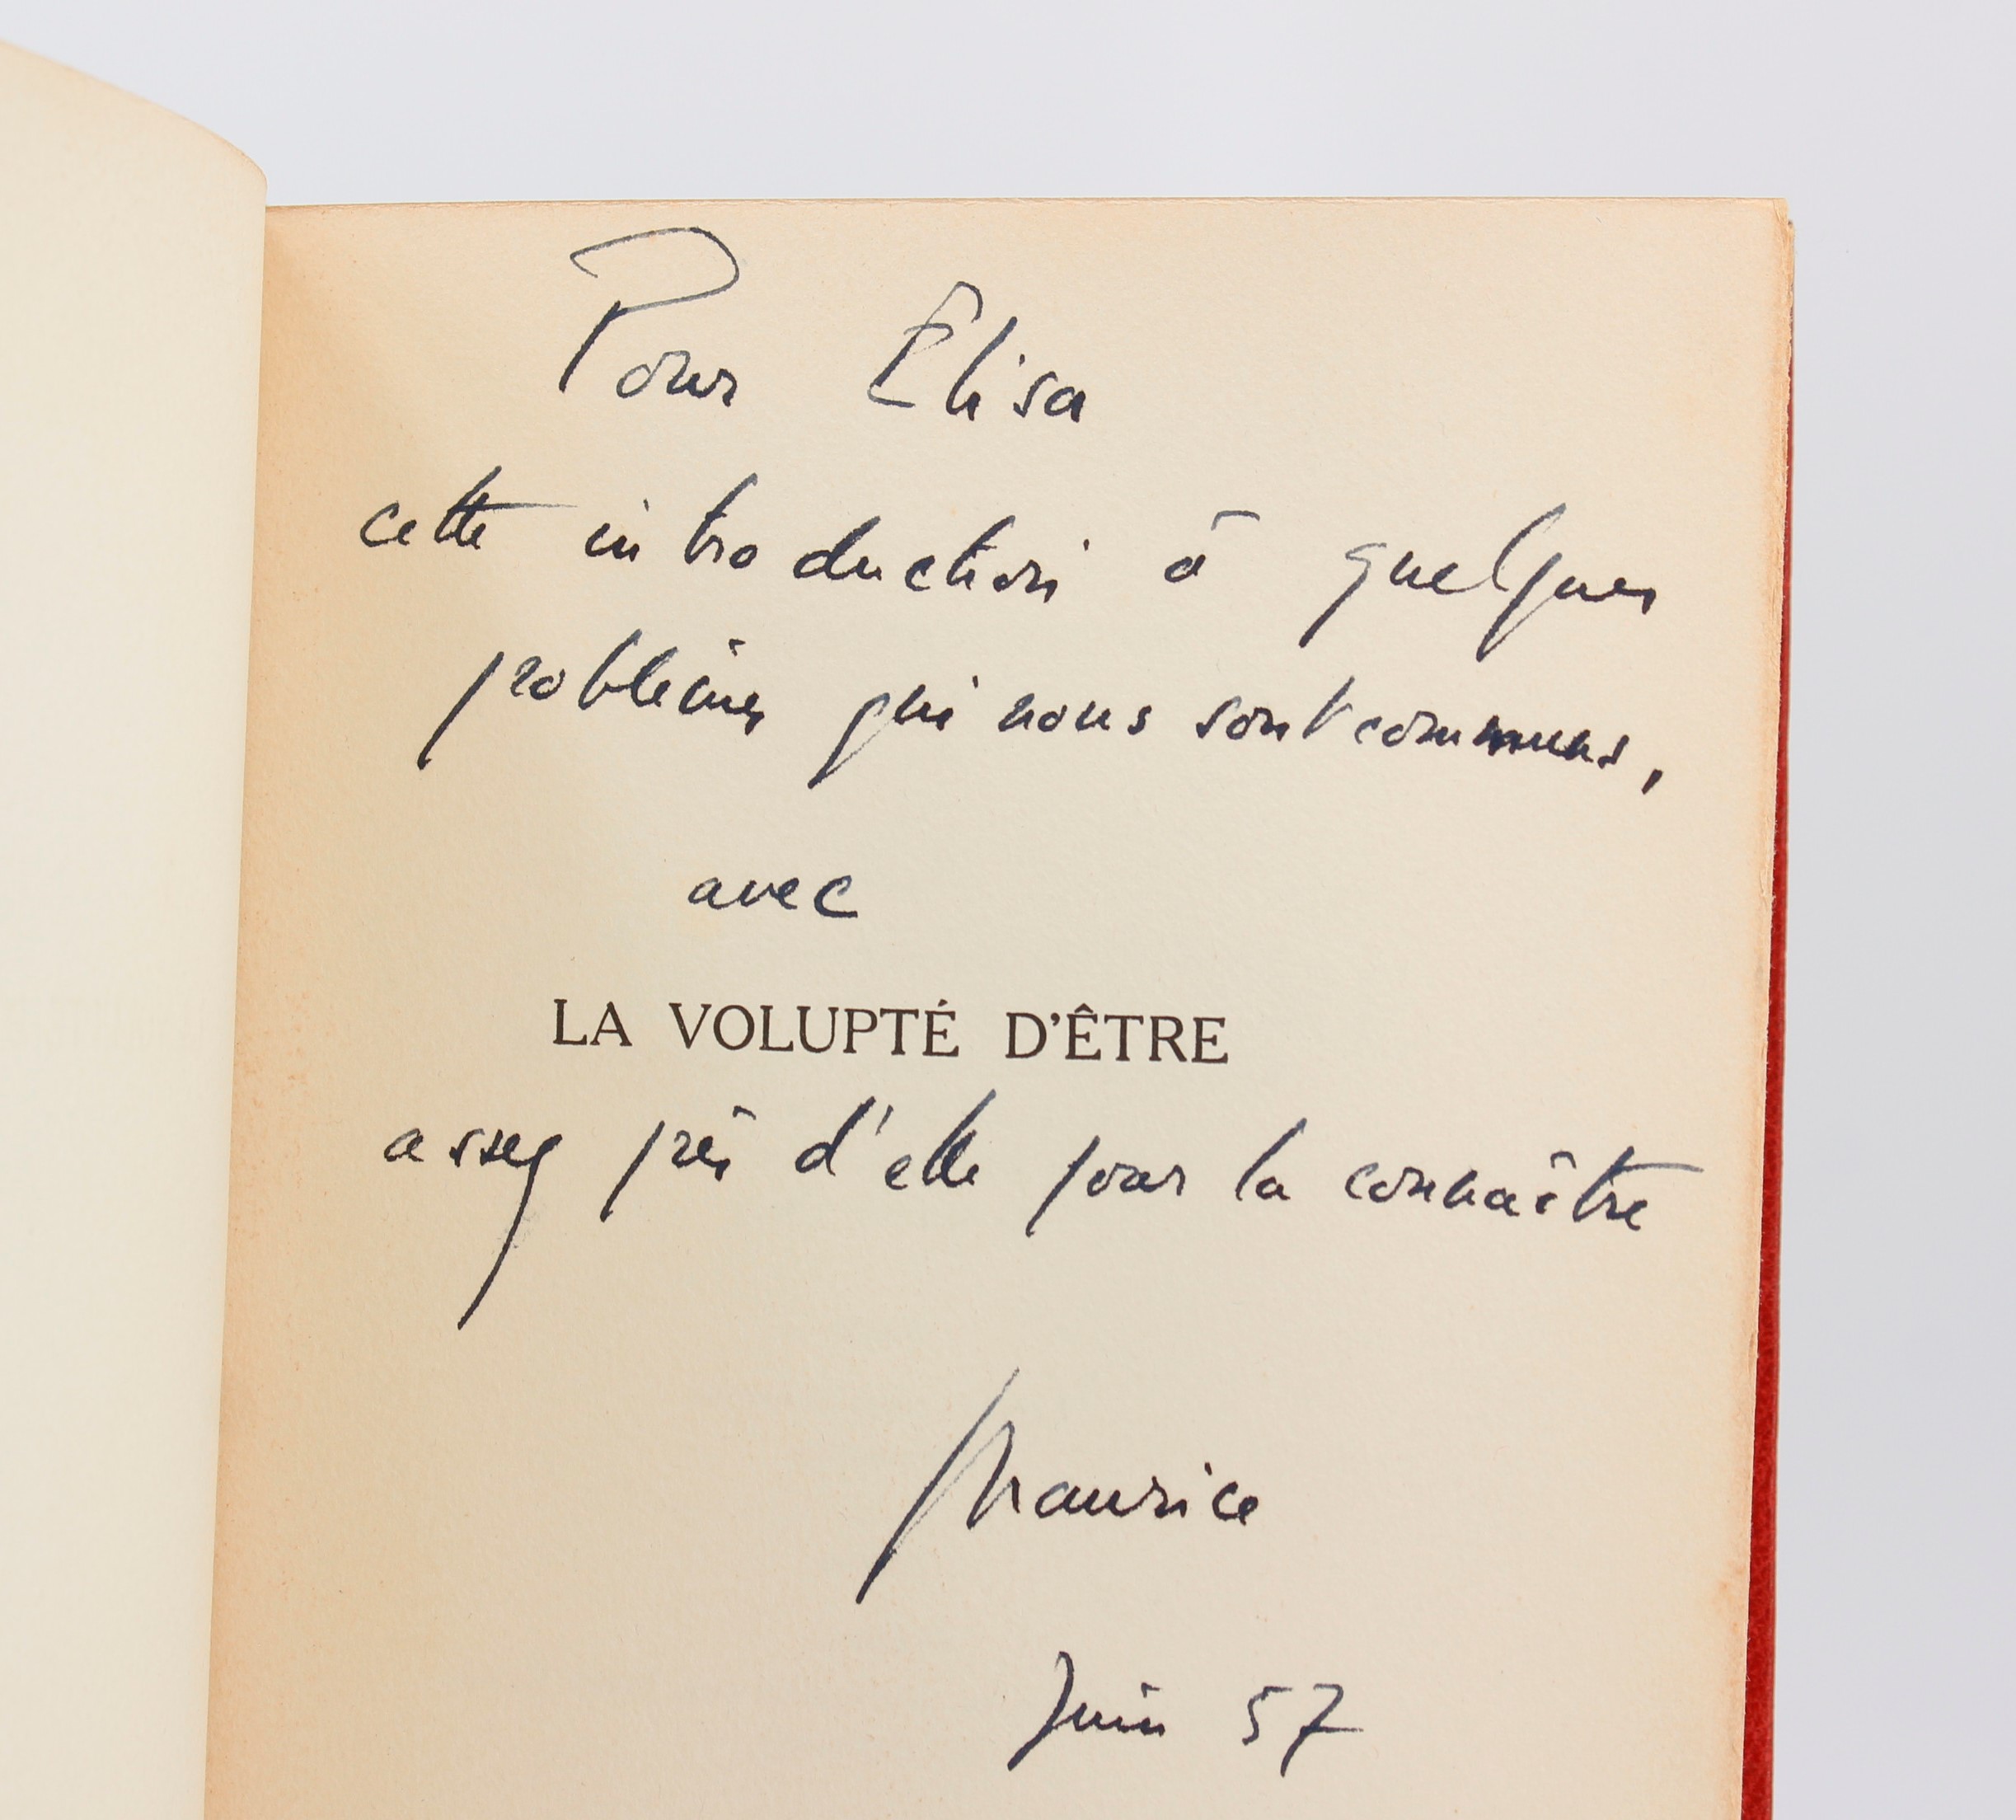 Pour Elisa
cette introduction à quelques
problèmes qui nous sont communs,
avec
LA VOLUPTÉ D'ÊTRE
assez près d'elle pour la connaître
Maurice
Juin 57